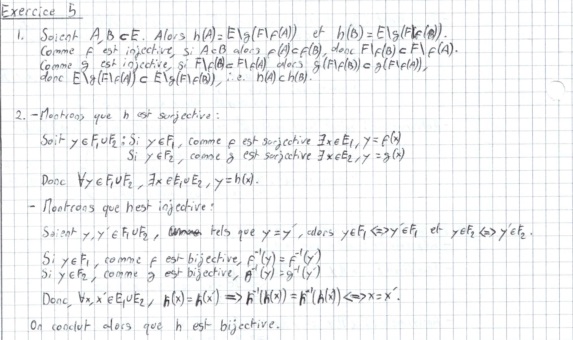 Exercice 5
1. Soient A, B ⊂ E. Alors h(A) = E\g(F\f(A)) et h(B) = E\g(F\f(B)).
Comme f est injective, si A⊂B alors f(A)⊂f(B), donc F\f(B) ⊂ F\f(A).
Comme g est injective, si F\f(B) ⊂ F\f(A) alors g(F\f(B)) ⊂ g(F\f(A)),
donc E\g(F\f(A)) ⊂ E\g(F\f(B)), i.e. h(A) ⊂ h(B).
2. - Montrons que h est surjective :
Soit y ∈ F₁∪F₂ : Si y∈F₁, comme f est surjective ∃x∈E₁, y = f(x)
Si y∈F₂, comme g est surjective ∃x∈E₂, y = g(x)
Donc ∀y∈F₁∪F₂, ∃x∈E₁∪E₂, y = h(x).
- Montrons que h est injective :
Soient y, y' ∈ F₁∪F₂, tels que y = y', alors y∈F₁ <=> y'∈F₁ et y∈F₂ <=> y'∈F₂.
Si y∈F₁, comme f est bijective, f⁻¹(y) = f⁻¹(y')
Si y∈F₂, comme g est bijective, g⁻¹(y) = g⁻¹(y')
Donc, ∀x, x'∈E₁∪E₂, h(x) = h(x') => h⁻¹(h(x)) = h⁻¹(h(x')) <=> x = x'.
On conclut alors que h est bijective.